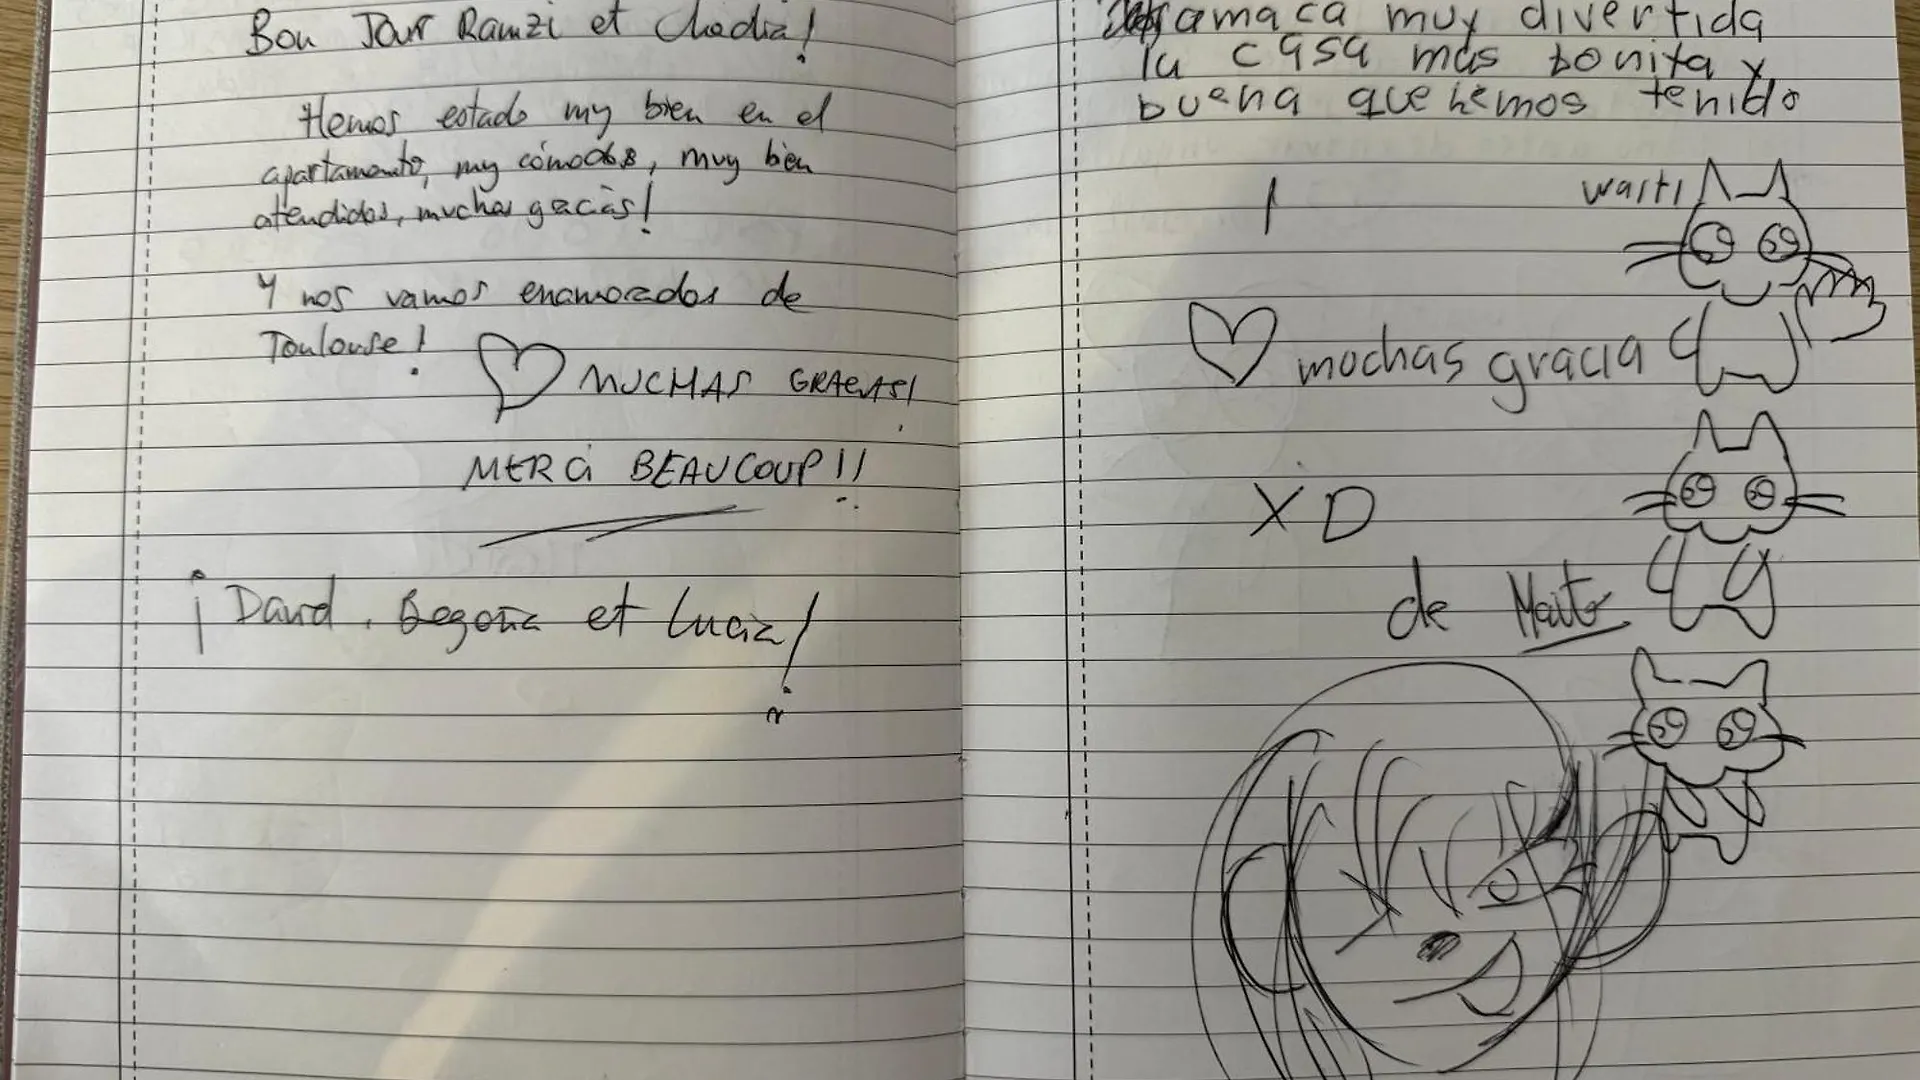 Bon Jour Ramzi et Chadia!
Hemos estado my bien en el
apartamento, my cómodos, muy bien
atendidos, muchas gracias!
Y nos vamos enamorados de
Toulouse!
MUCHAS GRACIAS!
MERCi BEAUCOUP!!
¡David, Begoña et Lucía!
amaca muy divertida
la casa mas bonita y
buena que hemos tenido
mochas gracia
XD
de